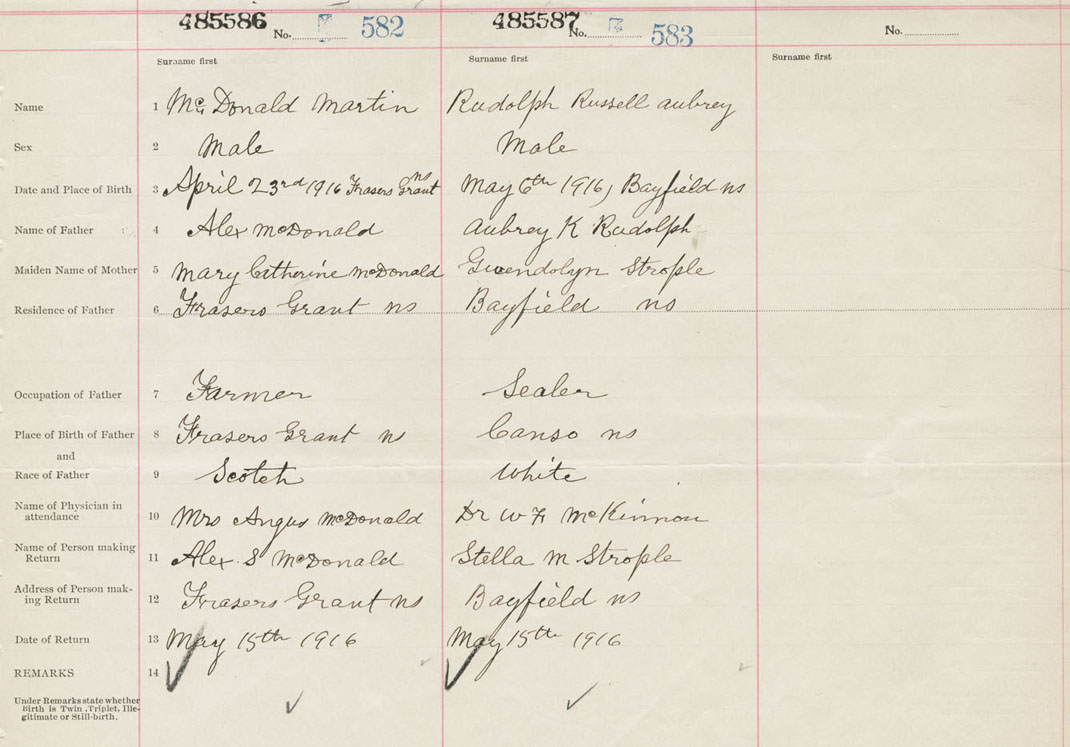 485586 No. 582 485587 No. 583 No.
Surname first Surname first Surname first
Name 1 McDonald Martin Rudolph Russell Aubrey
Sex 2 Male Male
Date and Place of Birth 3 April 23rd 1916 Frasers Grant ns May 6th 1916, Bayfield ns
Name of Father 4 Alex McDonald Aubrey K Rudolph
Maiden Name of Mother 5 Mary Catherine McDonald Gwendolyn Strople
Residence of Father 6 Frasers Grant ns Bayfield ns
Occupation of Father 7 Farmer Sealer
Place of Birth of Father 8 Frasers Grant n Canso ns
and
Race of Father 9 Scotch White
Name of Physician in
attendance 10 Mrs Angus McDonald Dr W F McKinnon
Name of Person making
Return 11 Alex S McDonald Stella M Strople
Address of Person mak-
ing Return 12 Frasers Grant ns Bayfield ns
Date of Return 13 May 15th 1916 May 15th 1916
REMARKS 14
Under Remarks state whether
Birth is Twin, Triplet, Ille-
gitimate or Still-birth.